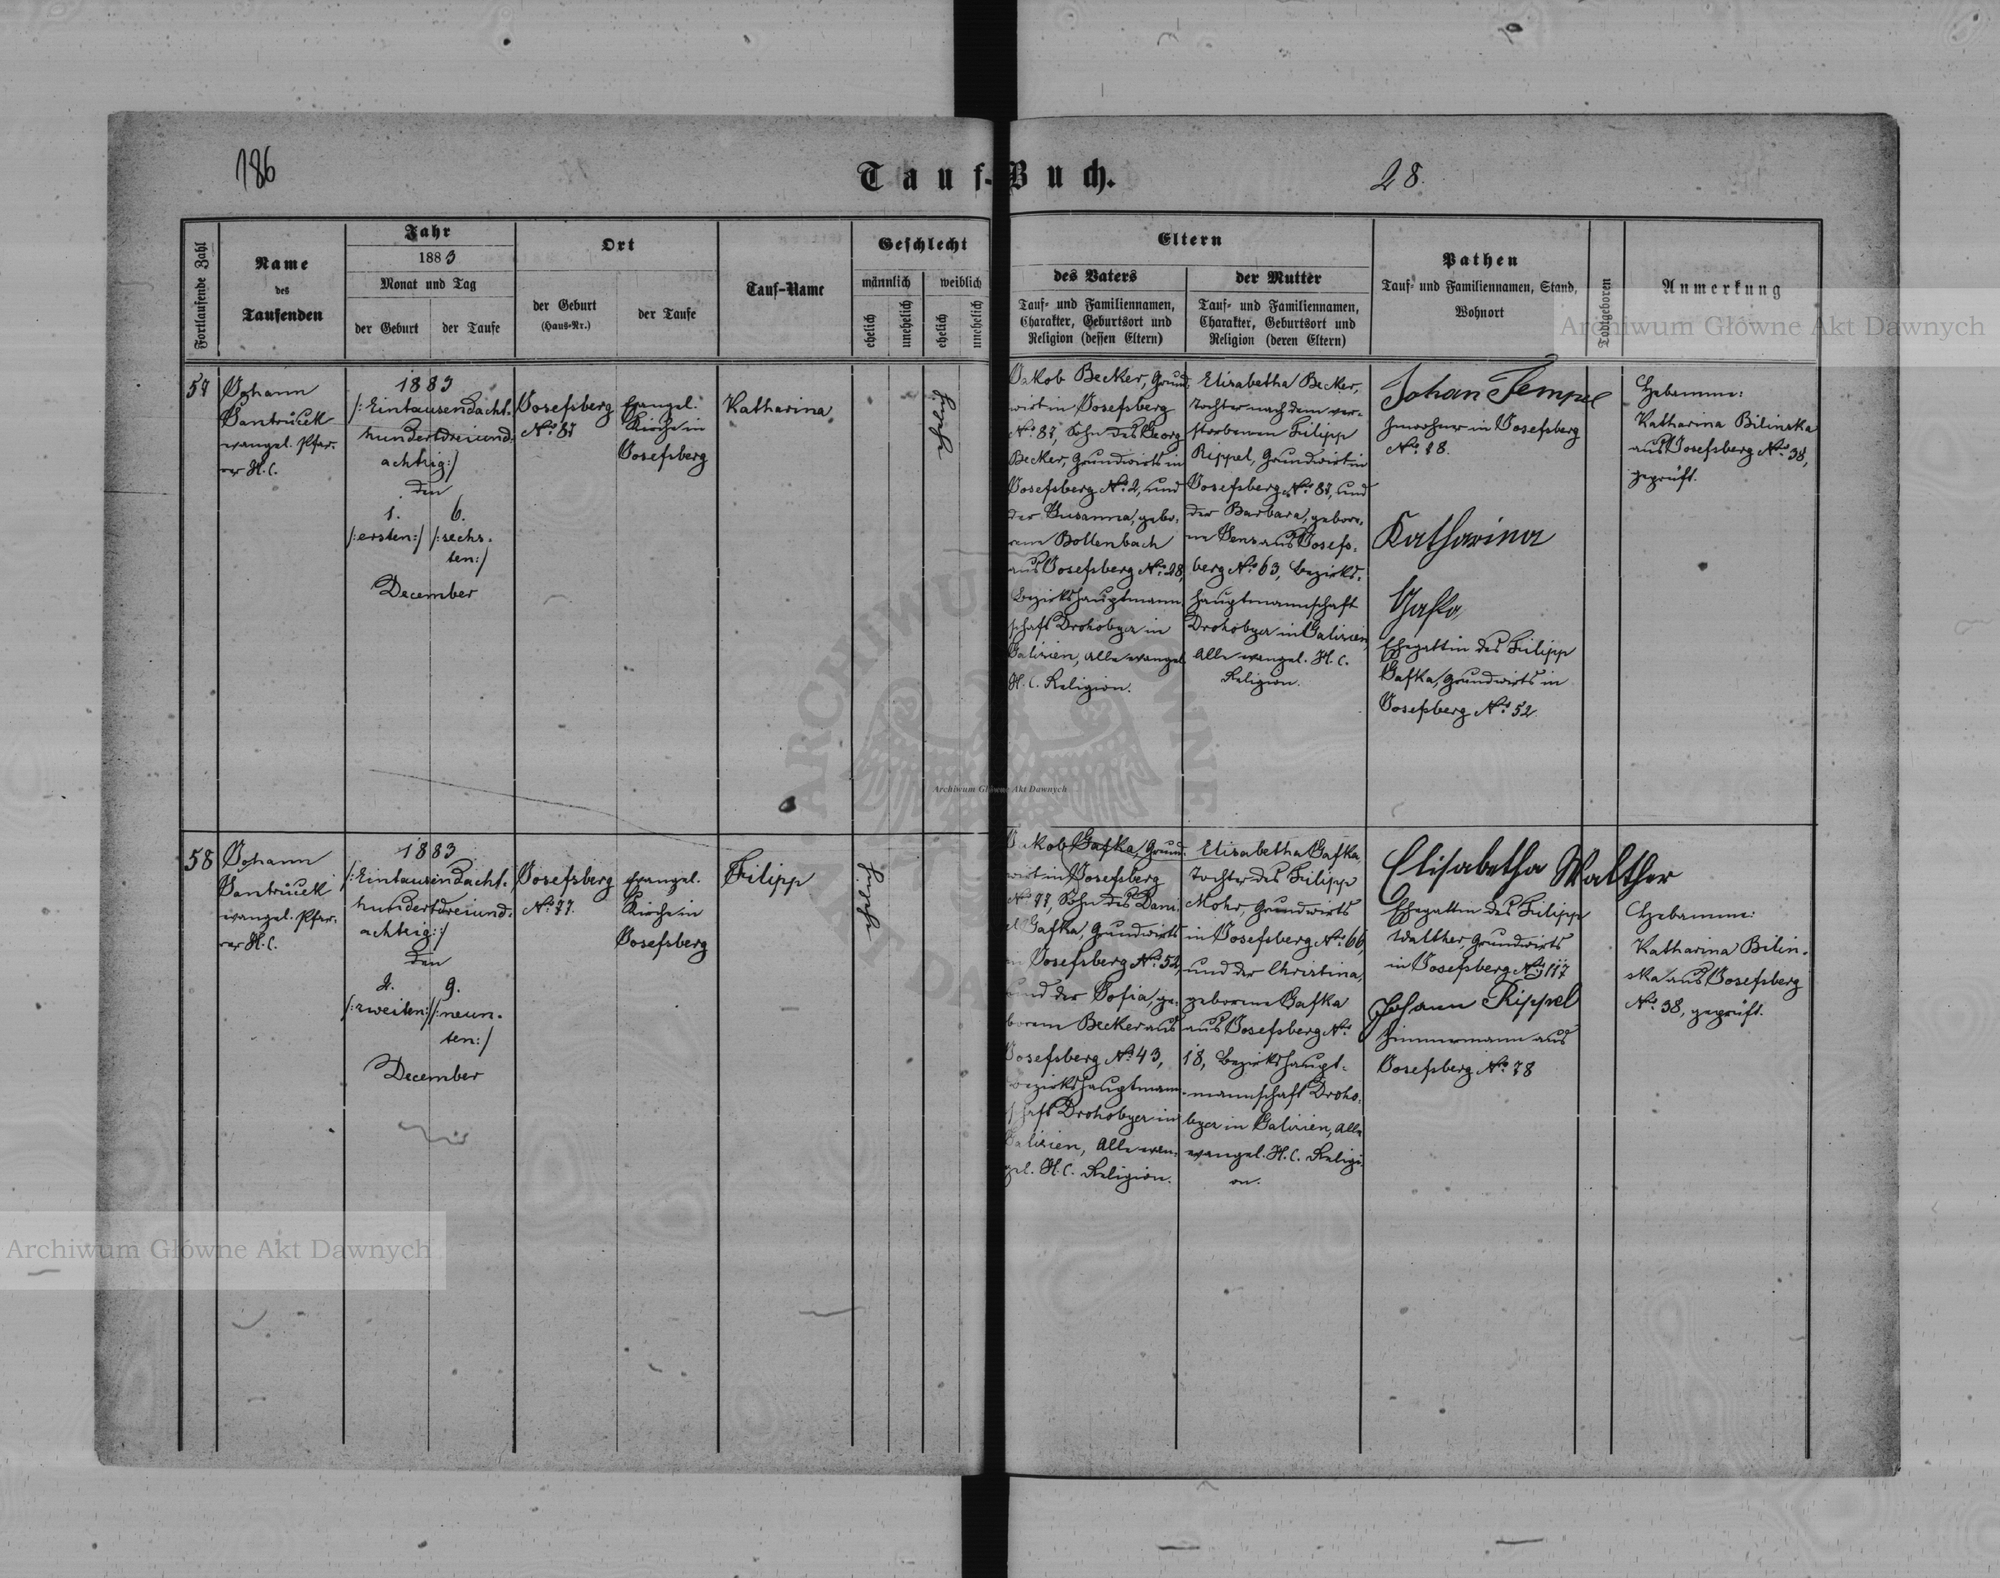 186
Tauf-Buch.
28.
Fortlaufende Zahl
Name
des
Taufenden
Jahr
1883
Monat und Tag
der Geburt
der Taufe
Ort
der Geburt
(Haus-Nr.)
der Taufe
Tauf-Name
Geschlecht
männlich
weiblich
ehelich
unehelich
ehelich
unehelich
Eltern
des Vaters
Tauf- und Familiennamen,
Charakter, Geburtsort und
Religion (dessen Eltern)
der Mutter
Tauf- und Familiennamen,
Charakter, Geburtsort und
Religion (deren Eltern)
Pathen
Tauf- und Familiennamen, Stand,
Wohnort
Todtgeboren
Anmerkung
57
Johann
Jantrücek
evangel. Pfar-
rer H.C.
1883
/:Eintausendacht-
hundertdreiund-
achtzig:/
den
1.
/:ersten:/
6.
/:sechs-
ten:/
December
Josefsberg
No. 87
Evangel.
Kirche in
Josefsberg
Katharina
Jakob Becker, Grund-
wirt in Josefsberg
No. 87, Sohn des Georg
Becker, Grundwirts in
Josefsberg No. 2, und
der Susanna, gebo-
rene Bollenbach
aus Josefsberg No. 28,
Bezirkshauptmann-
schaft Drohobycz in
Galizien, alle evangel.
H.C. Religion.
Elisabetha Becker,
Tochter nach dem ver-
storbenen Filipp
Rippel, Grundwirt in
Josefsberg No. 87, und
der Barbara, gebore-
ne aus Josefs-
berg No. 63, Bezirks-
hauptmannschaft
Drohobycz in Galizien,
alle evangel. H.C.
Religion.
Johan Tempel
Inwohner in Josefsberg
No. 28.
Katharina
Gafka,
Ehegattin des Filipp
Gafka, Grundwirts in
Josefsberg No. 52
Hebamme:
Katharina Bilinska
aus Josefsberg No. 38,
geprüft.
58
Johann
Jantrücek
evangel. Pfar-
rer H.C.
1883
/:Eintausendacht-
hundertdreiund-
achtzig:/
den
2.
/:zweiten:/
9.
/:neun-
ten:/
December
Josefsberg
No. 77.
Evangel.
Kirche in
Josefsberg
Filipp
Jakob Gafka, Grund-
wirt in Josefsberg
No. 77, Sohn des Dani-
el Gafka, Grundwirts
in Josefsberg No. 52,
und der Sofia, ge-
borene Becker aus
Josefsberg No. 43,
Bezirkshauptmann-
schaft Drohobycz in
Galizien, alle evan-
gel. H.C. Religion.
Elisabetha Gafka,
Tochter des Filipp
Mohr, Grundwirts
in Josefsberg No. 66,
und der Christina,
geborene Gafka
aus Josefsberg No.
18, Bezirkshaupt-
mannschaft Droho-
bycz in Galizien, alle
evangel. H.C. Religi-
on.
Elisabetha Walther
Ehegattin des Filipp
Walther, Grundwirts
in Josefsberg No. 117
Johann Rippel
Zimmermann aus
Josefsberg No. 78
Hebamme:
Katharina Bilin-
ska aus Josefsberg
No. 38, geprüft.
Archiwum Główne Akt Dawnych
Archiwum Główne Akt Dawnych
Archiwum Główne Akt Dawnych